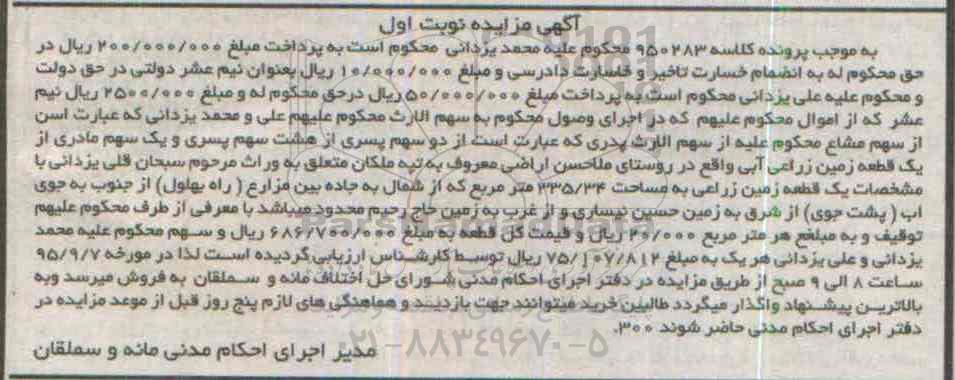 آگهی مزایده نوبت اول
به موجب پرونده کلاسه ۹۵۰۲۸۳ محکوم علیه محمد یزدانی محکوم است به پرداخت مبلغ ۲۰۰/۰۰۰/۰۰۰ ریال در
حق محکوم له به انضمام خسارت تاخیر و خسارت دادرسی و مبلغ ۱۰/۰۰۰/۰۰۰ ریال بعنوان نیم عشر دولتی در حق دولت
و محکوم علیه علی یزدانی محکوم است به پرداخت مبلغ ۵۰/۰۰۰/۰۰۰ ریال درحق محکوم له و مبلغ ۲۵۰۰/۰۰۰ ریال نیم
عشر که از اموال محکوم علیهم که در اجرای وصول محکوم به سهم الارث محکوم علیهم علی و محمد یزدانی که عبارت اسن
از سهم مشاع محکوم علیه از سهم الارث پدری که عبارت است از دو سهم پسری از هشت سهم پسری و یک سهم مادری از
یک قطعه زمین زراعی آبی واقع در روستای ملاحسن اراضی معروف به تپه ملکان متعلق به وراث مرحوم سبحان قلی یزدانی با
مشخصات یک قطعه زمین زراعی به مساحت ۳۳۵/۳۴ متر مربع که از شمال به جاده بین مزارع ( راه بهلول) از جنوب به جوی
اب ( پشت جوی) از شرق به زمین حسین نیساری و از غرب به زمین حاج رحیم محدود میباشد با معرفی از طرف محکوم علیهم
توقیف و به مبلغع هر متر مربع ۲۰/۰۰۰ ریال و قیمت کل قطعه به مبلغ ۶۸۶/۷۰۰/۰۰۰ ریال و سهم محکوم علیه محمد
یزدانی و علی یزدانی هر یک به مبلغ ۷۵/۱۰۷/۸۱۲ ریال توسط کارشناس ارزیابی گردیده است لذا در مورخه ۹۵/۹/۷
ساعت ۸ الی ۹ صبح از طریق مزایده در دفتر اجرای احکام مدنی شورای حل اختلاف مانه و سملقان به فروش میرسد وبه
بالاترین پیشنهاد واگذار میگردد طالبین خرید میتوانند جهت بازدید و هماهنگی های لازم پنج روز قبل از موعد مزایده در
دفتر اجرای احکام مدنی حاضر شوند ۳۰۰.
مدیر اجرای احکام مدنی مانه و سملقان
۰۲۱-۸۸۳۴۹۶۷۰-۵